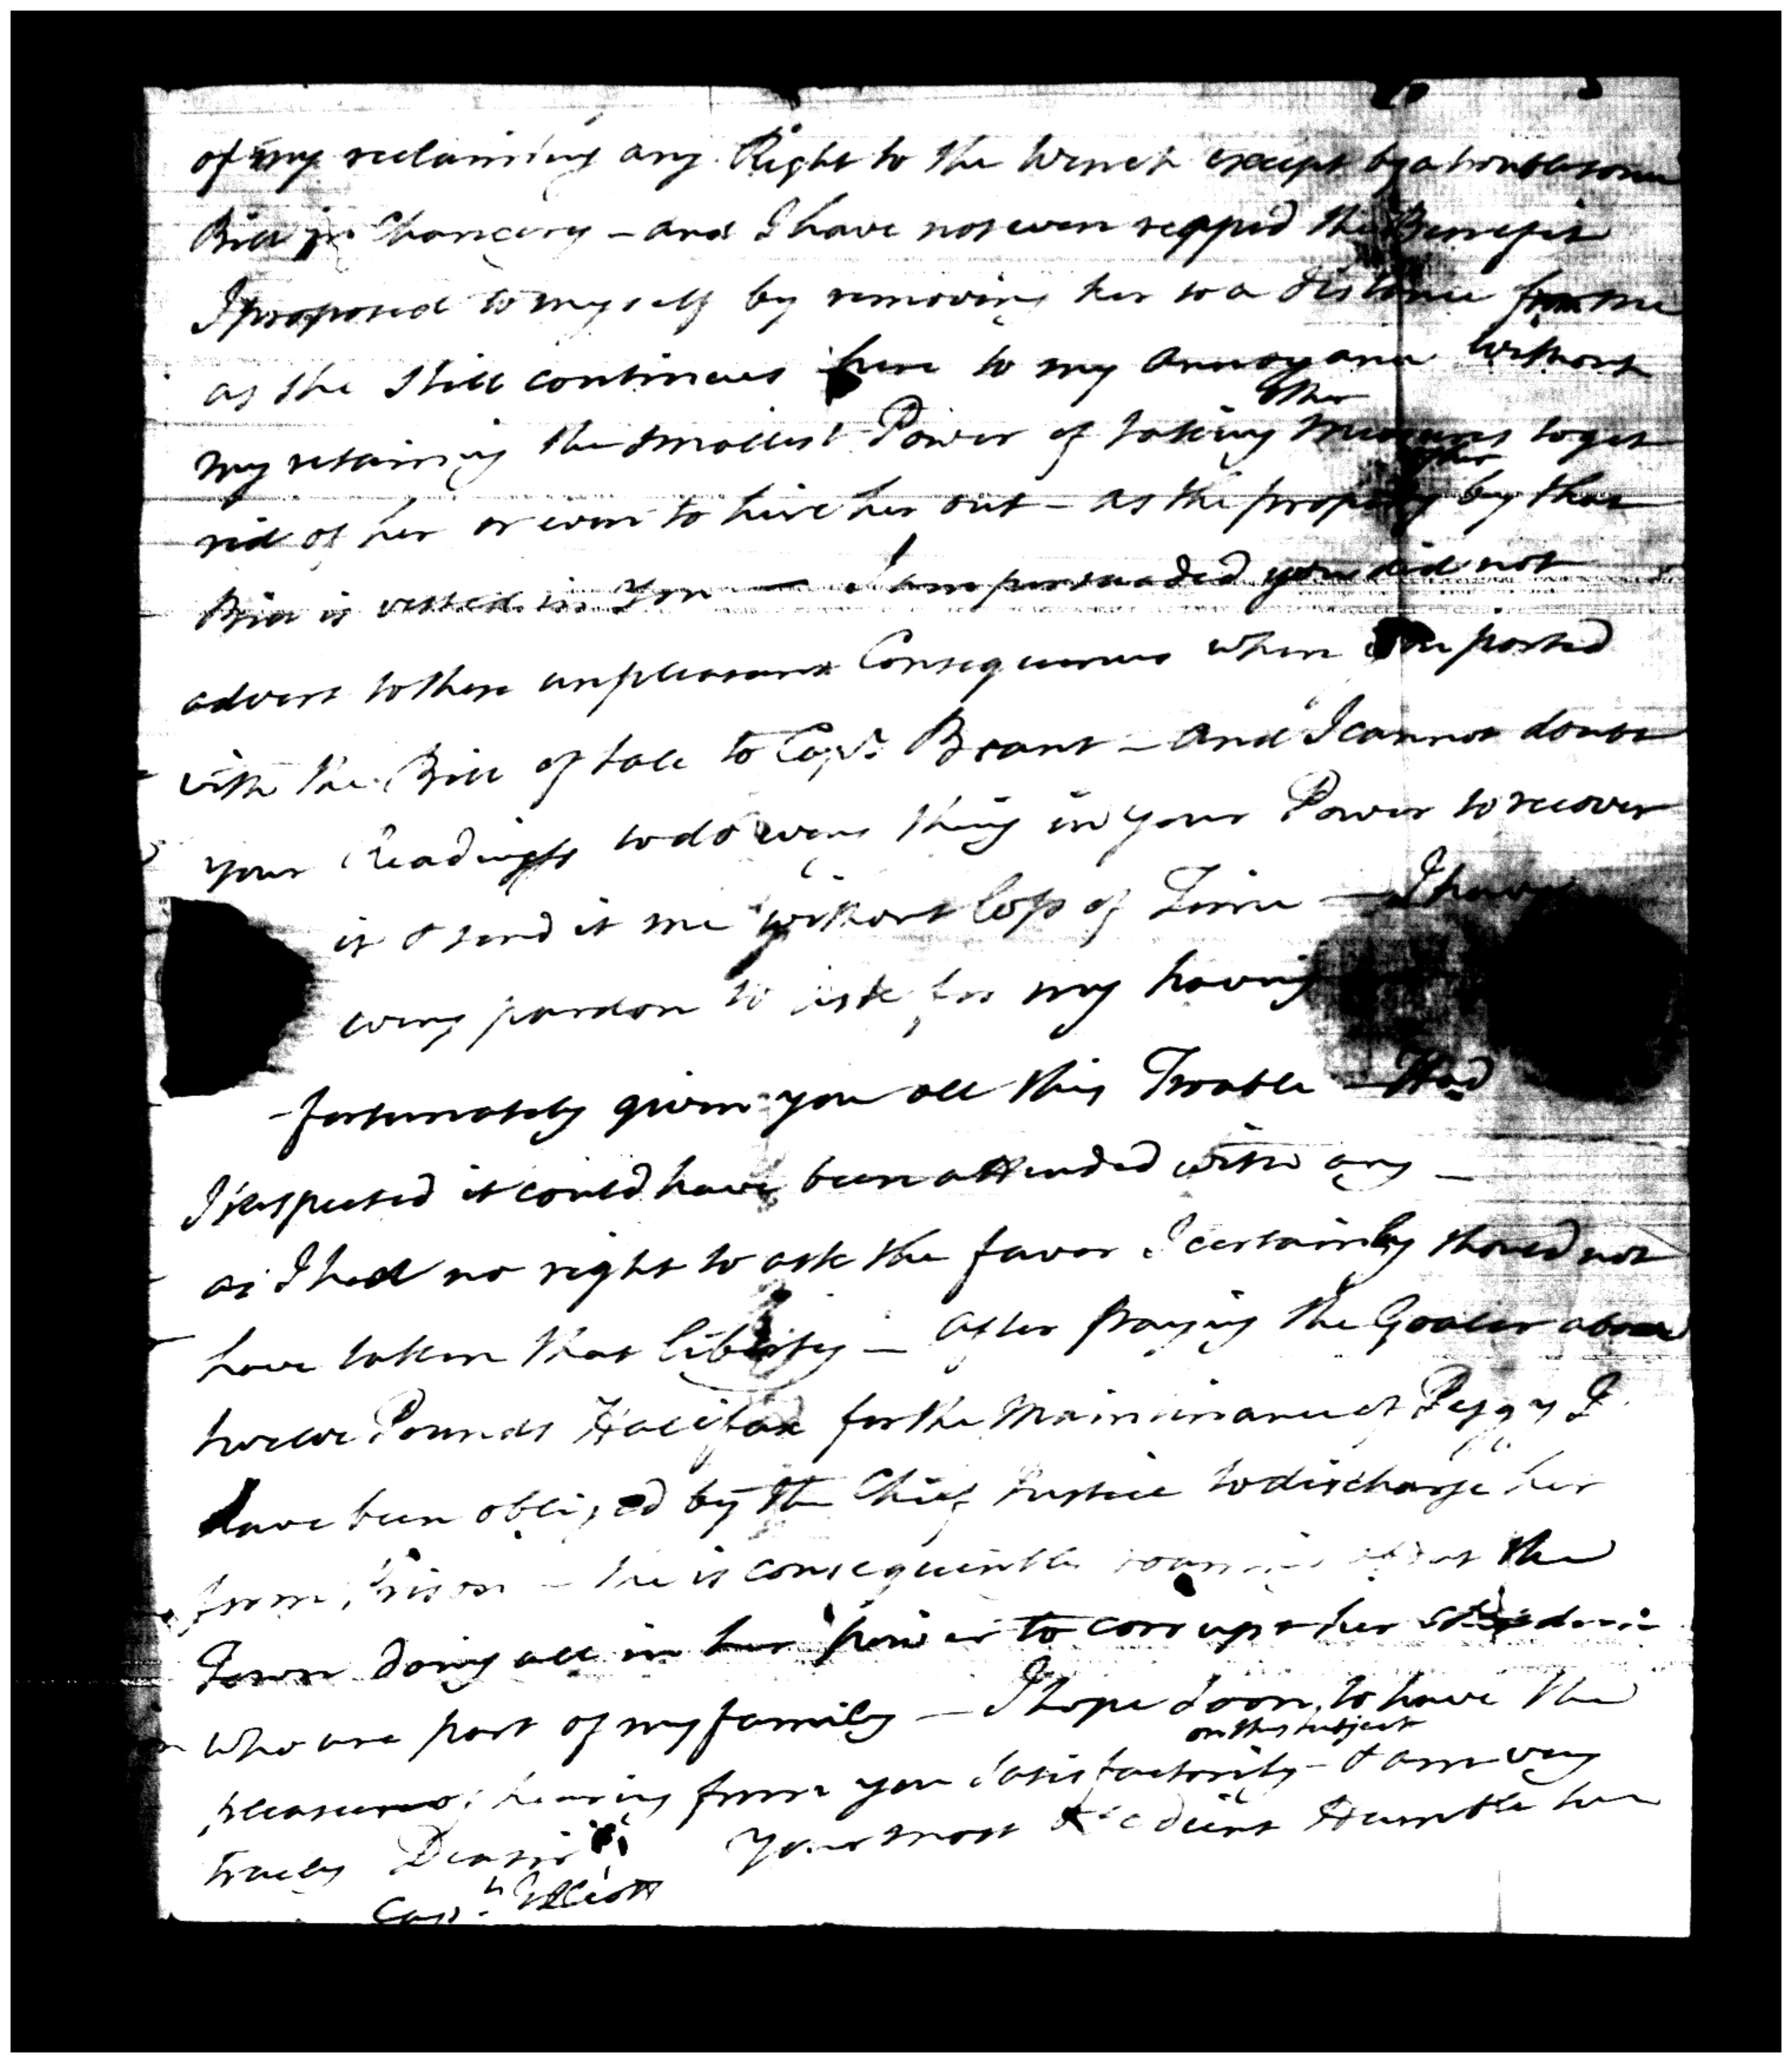 of my reclaiming any Right to the Wench except by a troublesome
Bill in Chancery – and I have not even reapp'd the Benefit
I proposed to myself by removing her to a distance from me
as she still continues here to my annoyance without
my retaining the smallest Power of taking other Measures to get
rid of her or even to hire her out – as the property by that
Bill is vested in You – I am persuaded you did not
advert to these unpleasant Consequences when you parted
with the Bill of Sale to Capt. Brant – and I cannot doubt
your Readiness to do every thing in your Power to recover
it & send it me without loss of Time – I have
every pardon to ask for my having
-fortunately given you all this Trouble – Had
I suspected it could have been attended with any –
as I had no right to ask the favor I certainly should not
have taken that liberty – After paying the Goaler above
twelve Pounds Halifax for the Maintenance of Peggy I
have been obliged by the Chief Justice to discharge her
from Prison – she is consequently running about the
Town doing all in her power to corrupt her
who are part of my family – I hope soon to have the
pleasure of hearing from you satisfactorily on this subject – & am very
truely Dear Sir Your most Obedient Humble
Capt. Elliott